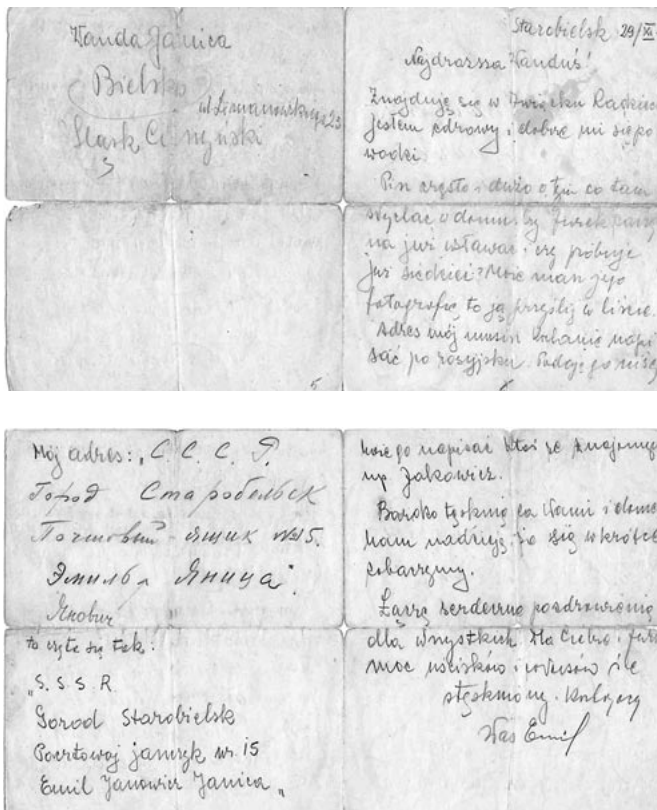 Wanda Janica
Bielsko
ul. Limanowskiego 23
Śląsk Cieszyński
Starobielsk 29/XI
Najdroższa Wanduś!
Znajduję się w Związku Radzie
jestem zdrowy i dobrze mi się po
wodzi.
Pisz często i dużo o tym co tam
słychać w domu. Czy Jurek
na już wstawać i czy próbuje
już siedzieć? Może masz jego
fotografię to ją prześlij w liście.
Adres mój musisz Kochanie napi
sać po rosyjsku. Podaję go niżej
Mój adres: „С. С. С. Р.
Город Старобельск
Почтовый ящик №15.
Эмиль Яница".
Янович
to czyta się tak:
„S. S. S. R.
Gorod Starobielsk
Pocztowoj jamszyk nr. 15
Emil Janowicz Janica „
może go napisać ktoś ze znajomych
np Jakowicz.
Bardzo tęsknię za Wami i domem
mam nadzieję, że się wkrótce
zobaczymy.
Łączę serdeczne pozdrowienia
dla wszystkich. Dla Ciebie i Jurka
moc uścisków i całusów śle
stęskniony, kochający
Was Emil